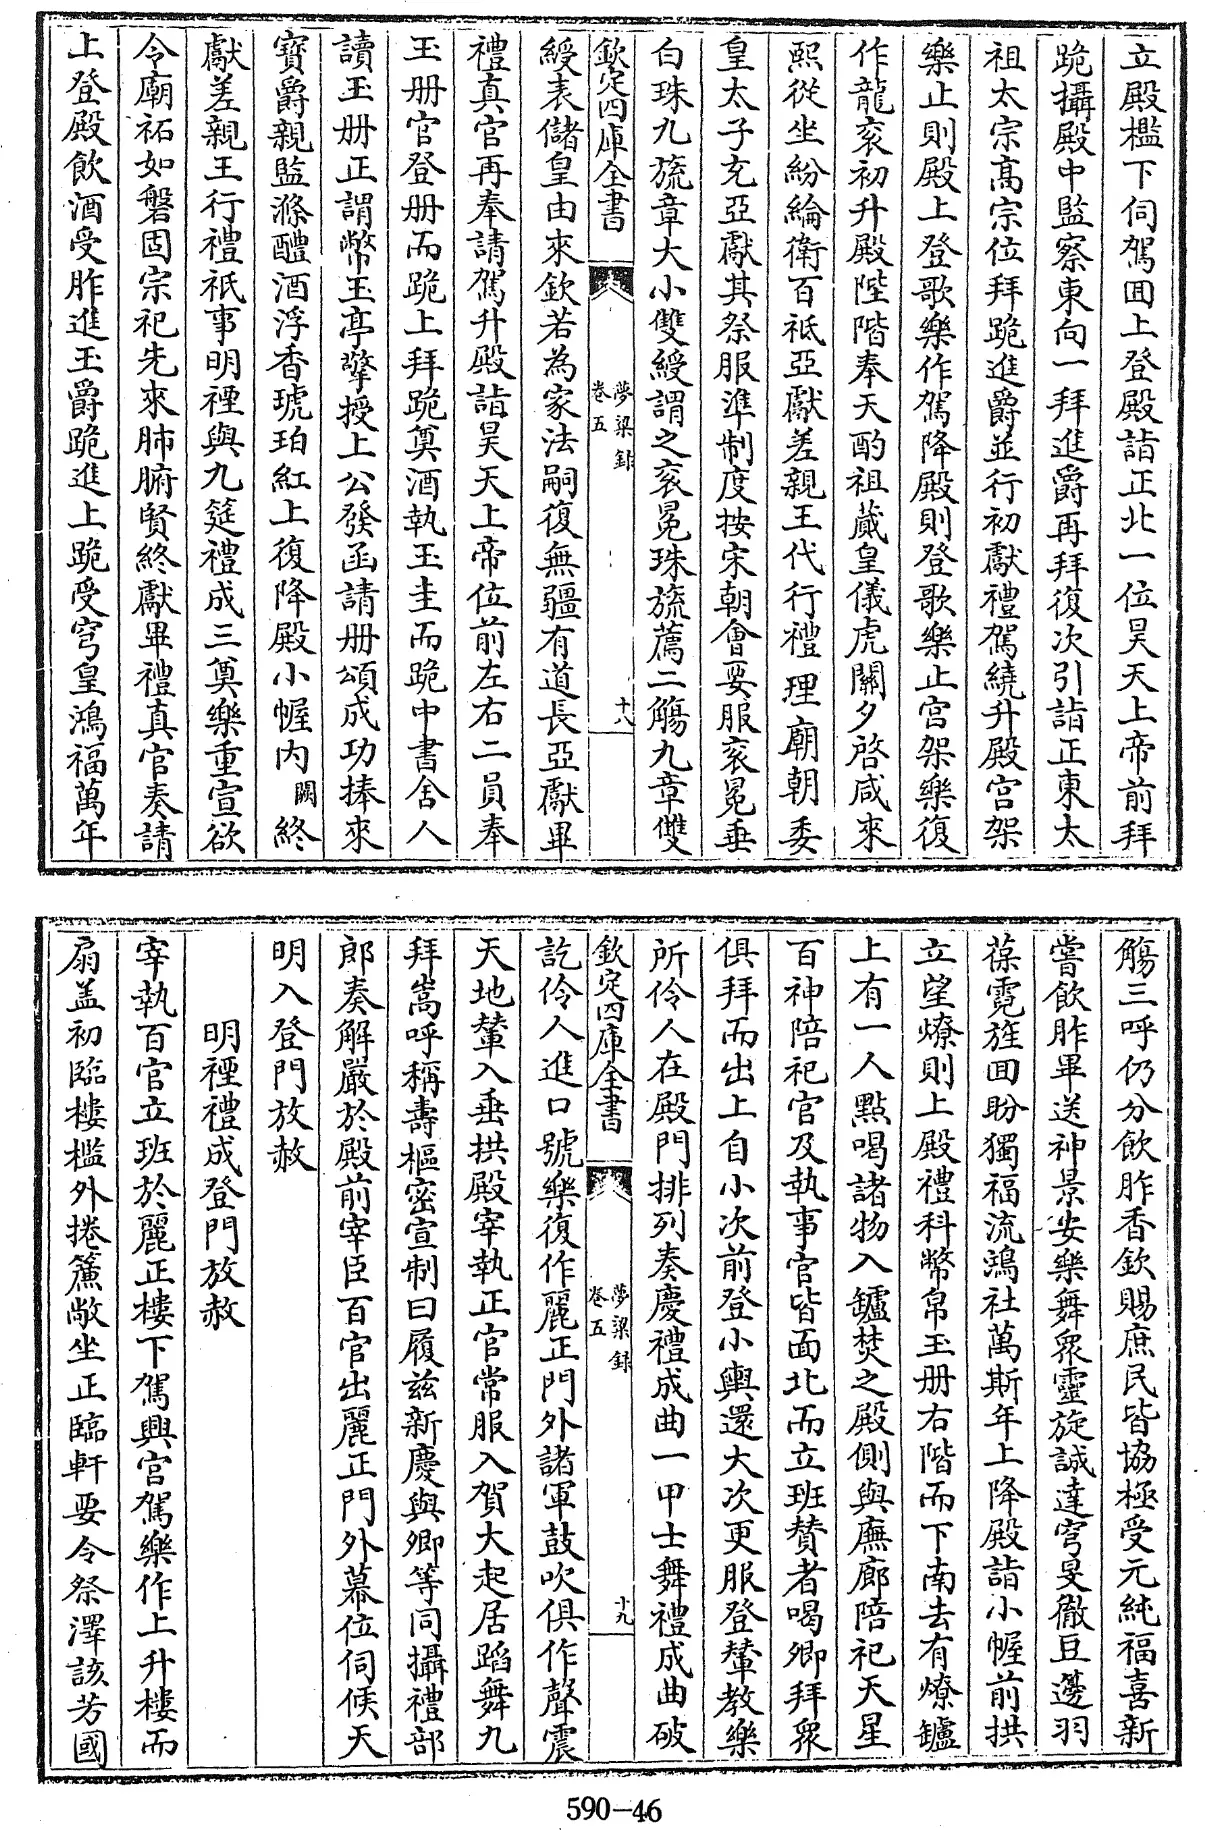 立殿檻下伺駕回上登殿詣正北一位昊天上帝前拜
跪攝殿中監察東向一拜進爵再拜復次引詣正東太
祖太宗髙宗位拜跪進爵並行初獻禮駕繞升殿宫架
樂止則殿上登歌樂作駕降殿則登歌樂止宫架樂復
作龍衮初升殿陛階奉天酌祖蕆皇儀虎關夕啓咸來
熙從坐紛綸衛百祗亞獻差親王代行禮理廟朝委
皇太子充亞獻其祭服準制度按宋朝會要服衮冕垂
白珠九旒章大小雙綬謂之衮冕珠旒薦二觴九章雙
欽定四庫全書
夢粱録
卷五
十八
綬表儲皇由來欽若為家法嗣復無疆有道長亞獻畢
禮真官再奉請駕升殿詣昊天上帝位前左右二員奉
玉册官登册而跪上拜跪奠酒執玉圭而跪中書舍人
讀玉册正謂幣玉亭擎授上公發函請册頌成功捧來
寳爵親監滌醴酒浮香琥珀紅上復降殿小幄内闕終
獻差親王行禮祇事明禋與九筵禮成三奠樂重宣欲
令廟祏如磐固宗祀先來肺腑賢終獻畢禮真官奏請
上登殿飲酒受胙進玉爵跪進上跪受穹皇鴻福萬年
觴三呼仍分飲胙香欽賜庶民皆協極受元純福喜新
嘗飲胙畢送神景安樂舞衆靈旋誠達穹旻徹豆籩羽
葆霓旌回盼獨福流鴻社萬斯年上降殿詣小幄前拱
立望燎則上殿禮科幣帛玉册右階而下南去有燎鑪
上有一人㸃喝諸物入鑪焚之殿側與廡廊陪祀天星
百神陪祀官及執事官皆面北而立班賛者喝卿拜衆
俱拜而出上自小次前登小輿還大次更服登輦教樂
所伶人在殿門排列奏慶禮成曲一甲士舞禮成曲破
欽定四庫全書
夢粱録
卷五
十九
訖伶人進口號樂復作麗正門外諸軍鼓吹俱作聲震
天地輦入垂拱殿宰執正官常服入賀大起居蹈舞九
拜嵩呼稱壽樞密宣制曰履兹新慶與卿等同攝禮部
郎奏解嚴於殿前宰臣百官出麗正門外幕位伺候天
明入登門放赦
明禋禮成登門放赦
宰執百官立班於麗正樓下駕興宫駕樂作上升樓而
扇盖初臨樓檻外捲簾敞坐正臨軒要令祭澤該芳國
590-46